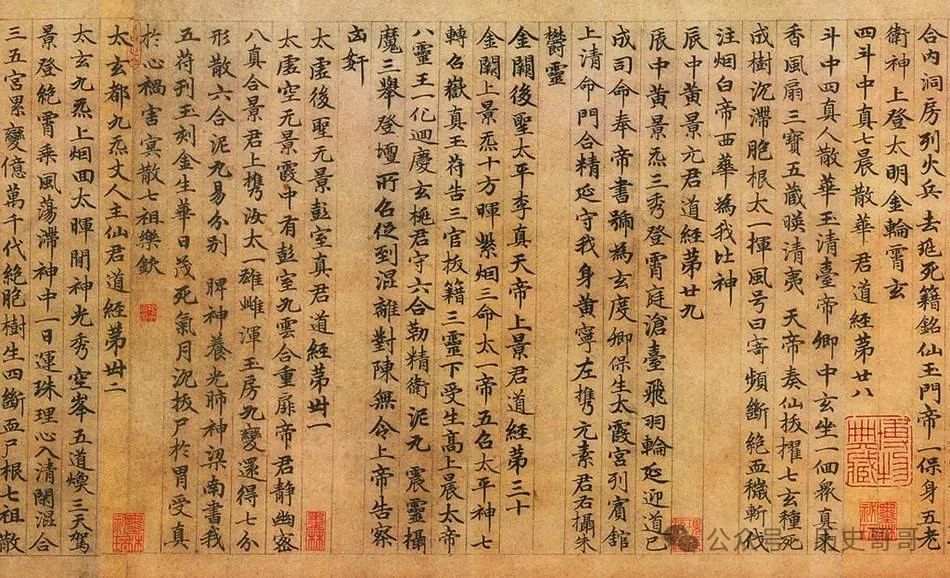 合内洞房列火兵去死籍銘仙玉門帝保身五老
衛神上登太明金輪霄玄
四斗中真七晨散華君道經第廿八
斗中四真人散華玉清臺帝卿中玄坐一個衆真來
香風扇三寶五藏暎清夷 天帝奏仙拔擢七玄種死
戍樹沉滯胞根太一揮風兮曰寄頻斷絕血穢斬伐
注烟白帝西華為我比神
辰中黄景元君道經第廿九
辰中黄景炁三秀登霄庭滄臺飛羽輪延迎道已
成司命奉帝書號為玄度卿保生太霞宮列賓舘
上清命門合精延守我身黄寧左携元素君右攝朱
鬱靈
金闕後聖太平李真天帝上景君道經第三十
金闕上景炁十方暉紫烟三命太一帝五召太平神七
轉召嶽真玉符告三官拔籍三靈下受生髙上晨太帝
八靈王一化廻慶玄梴君守六合勒精衛泥丸震靈攝
魔三舉登壇所召促到混離對陳無令上帝告察
凶奸
太虛後聖元景彭室真君道經第卅一
太虛空元景霞中有彭室九雲合重扉帝君静幽宻
八真合景君上携汝太一雄雌渾玉房九變還得七分
形散六合泥丸易分别 脾神養光肺神梁南書我
五苻刊玉刻金生華日茂死氣月沉拔尸於胃受真
於心禍害㝠散七祖樂欽
太玄都九炁丈人主仙君道經第卅二
太玄九炁上烟回太暉開神光秀空峯五道煥三天駕
景登絕霄乘風蕩滯神中一日運珠理心入清閑混合
三五宮累變億萬千代絕胞樹生四斷血尸根七祖散
博物典藏
公众号·历史哥哥